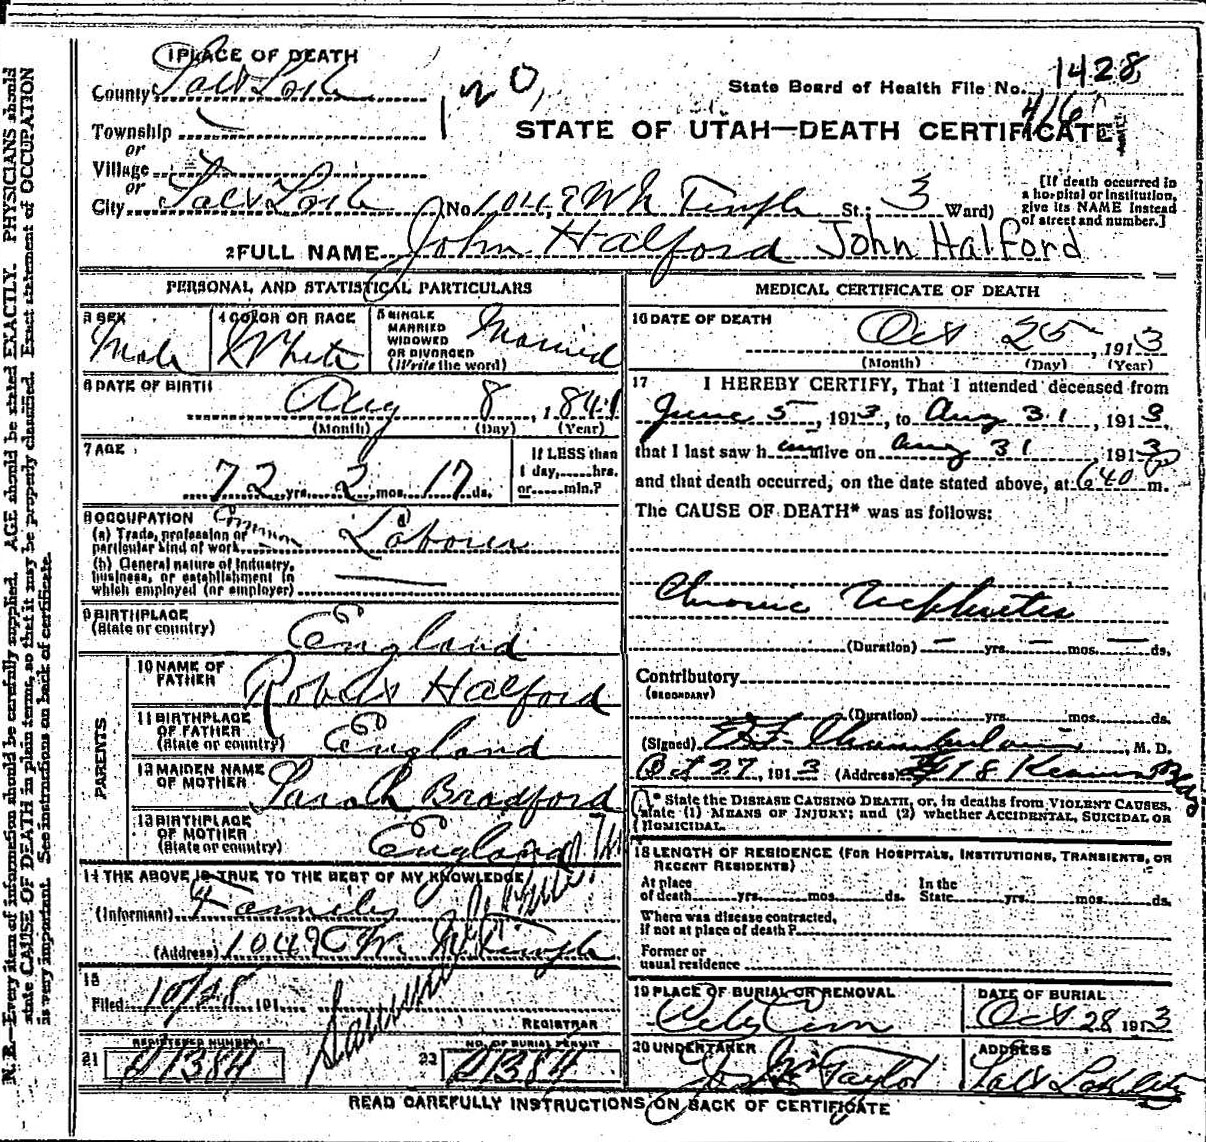 1 PLACE OF DEATH
County Salt Lake
Township
or
Village
or
City Salt Lake (No. W N Temple St.; 3 Ward)
State Board of Health File No. 1428
416
STATE OF UTAH—DEATH CERTIFICATE
[If death occurred in a hospital or institution, give its NAME instead of street and number.]
2 FULL NAME John Halford John Halford
PERSONAL AND STATISTICAL PARTICULARS
3 SEX Male
4 COLOR OR RACE White
5 SINGLE MARRIED WIDOWED OR DIVORCED (Write the word) Married
6 DATE OF BIRTH Aug 8, 1841
(Month) (Day) (Year)
7 AGE 72 yrs. 2 mos. 17 ds.
If LESS than 1 day,......hrs. or......min.?
8 OCCUPATION
(a) Trade, profession or particular kind of work Common Laborer
(b) General nature of industry, business, or establishment in which employed (or employer)
9 BIRTHPLACE (State or country) England
PARENTS
10 NAME OF FATHER Robert Halford
11 BIRTHPLACE OF FATHER (State or country) England
12 MAIDEN NAME OF MOTHER Sarah Bradford
13 BIRTHPLACE OF MOTHER (State or country) England
14 THE ABOVE IS TRUE TO THE BEST OF MY KNOWLEDGE
(Informant) Family
(Address) W. N. Temple
15
Filed 10/28 191
REGISTRAR
21 REGISTERED NUMBER D1384
22 NO. OF BURIAL PERMIT D1384
MEDICAL CERTIFICATE OF DEATH
16 DATE OF DEATH Oct 25, 1913
(Month) (Day) (Year)
17 I HEREBY CERTIFY, That I attended deceased from
June 5, 1913, to Aug 31, 1913,
that I last saw him alive on Aug 31, 1913
and that death occurred, on the date stated above, at 640 P m.
The CAUSE OF DEATH* was as follows:
Chronic Nephritis
(Duration) — yrs. — mos. — ds.
Contributory
(SECONDARY)
(Duration) yrs. mos. ds.
(Signed) Chamberlain, M. D.
Oct 27, 1913 (Address) 418 Kearns Bldg
* State the DISEASE CAUSING DEATH, or, in deaths from VIOLENT CAUSES, state (1) MEANS OF INJURY; and (2) whether ACCIDENTAL, SUICIDAL OR HOMICIDAL.
18 LENGTH OF RESIDENCE (FOR HOSPITALS, INSTITUTIONS, TRANSIENTS, OR RECENT RESIDENTS)
At place of death......yrs......mos......ds. In the State......yrs......mos......ds.
Where was disease contracted, if not at place of death?
Former or usual residence
19 PLACE OF BURIAL OR REMOVAL City Cem
DATE OF BURIAL Oct 28 1913
20 UNDERTAKER Taylor
ADDRESS Salt Lake City
READ CAREFULLY INSTRUCTIONS ON BACK OF CERTIFICATE
N. B.—Every item of information should be carefully supplied. AGE should be stated EXACTLY. PHYSICIANS should
state CAUSE OF DEATH in plain terms, so that it may be properly classified. Exact statement of OCCUPATION
is very important. See instructions on back of certificate.